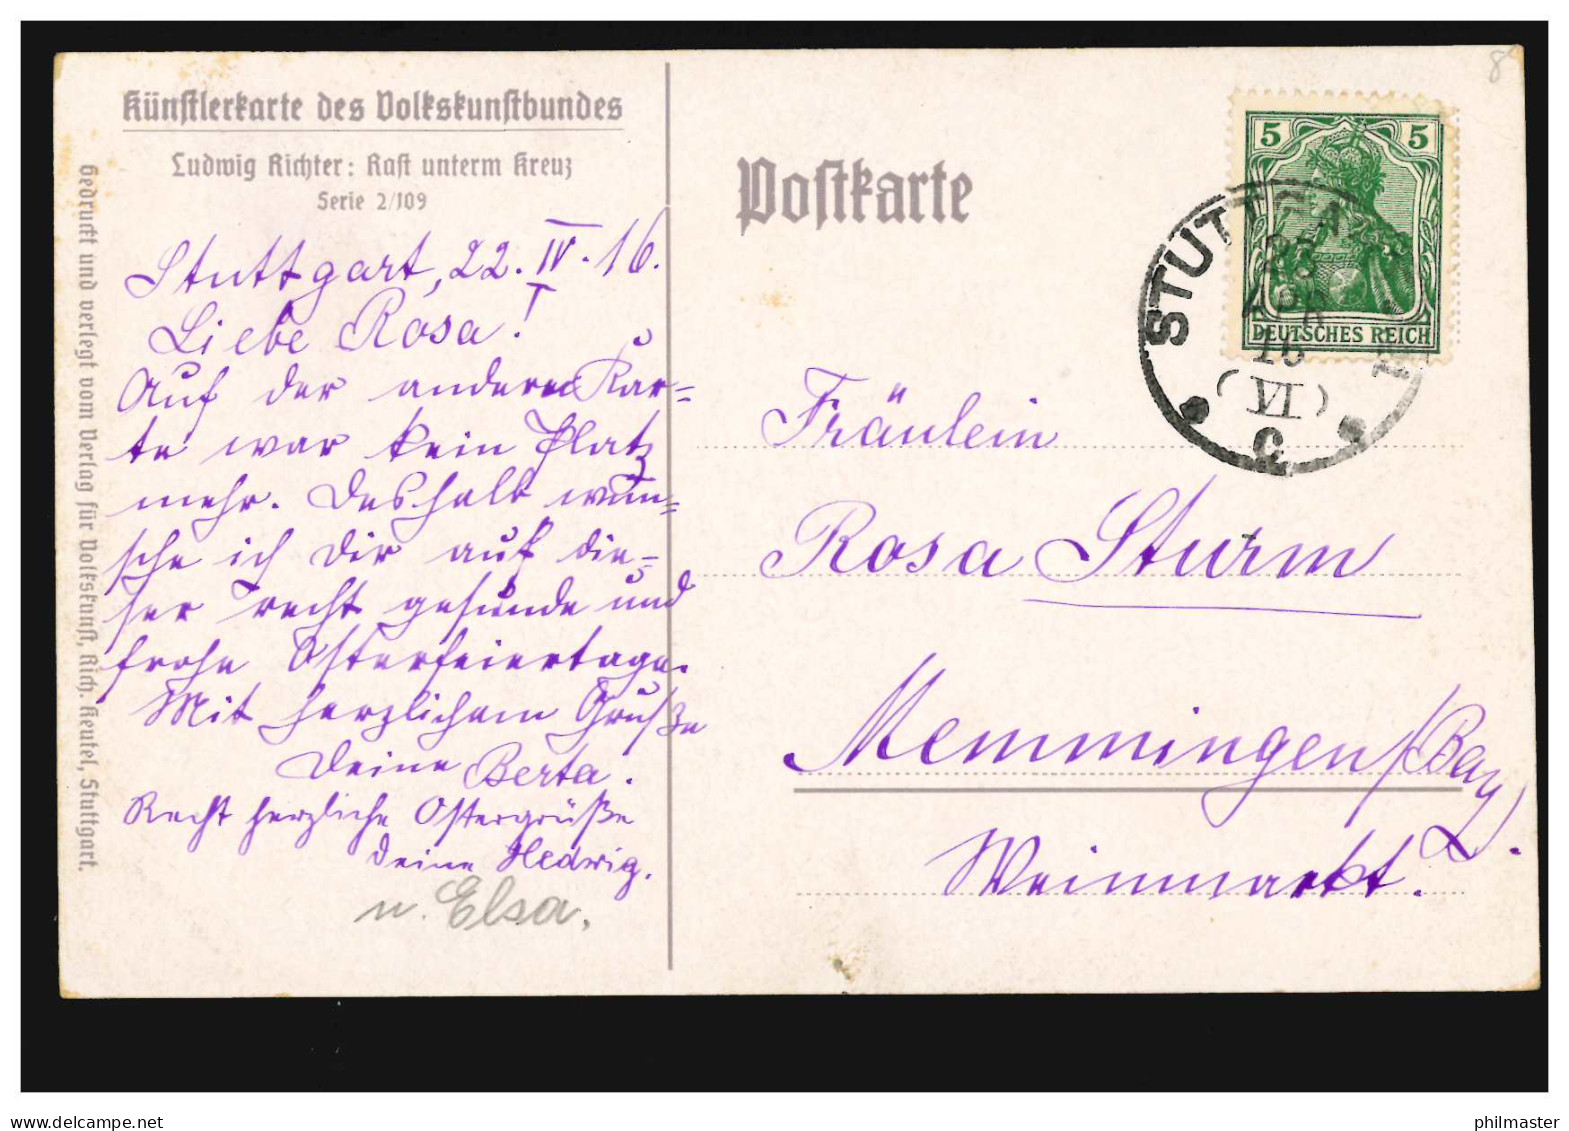 Künstlerkarte des Volkskunstbundes
Ludwig Richter: Rast unterm Kreuz
Serie 2/109
Stuttgart, 22. IV. 16.
Liebe Rosa!
Auf der anderen Kar=
te war kein Platz
mehr. Deshalb wün=
sche ich Dir auf die=
ser recht gesunde und
frohe Osterfeiertage.
Mit herzlichem Gruße
Deine Berta.
Recht herzliche Ostergrüße
Deine Hedwig.
u. Elsa.
Gedruckt und verlegt vom Verlag für Volkskunst, Rich. Keutel, Stuttgart.
Postkarte
5 5
DEUTSCHES REICH
STUTTGA
APR
(VI)
C
Fräulein
Rosa Sturm
Memmingen/Bay
Weinmarkt.
8
delcampe.net
philmaster